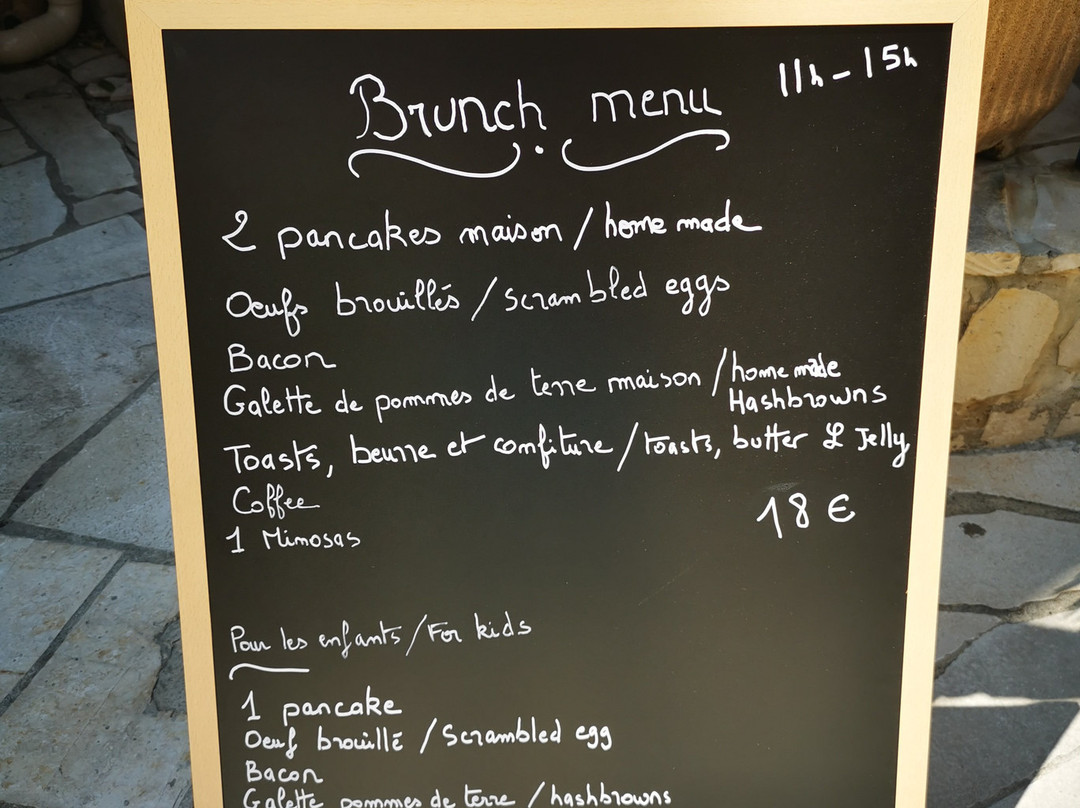 Brunch menu 11h - 15h
2 pancakes maison / home made
Oeufs brouillés / scrambled eggs
Bacon
Galette de pommes de terre maison / home made
Hashbrowns
Toasts, beurre et confiture / toasts, butter & Jelly
Coffee
18 €
1 Mimosas
Pour les enfants / For kids
1 pancake
Oeuf brouillé / Scrambled egg
Bacon
Galette pommes de terre / hashbrowns